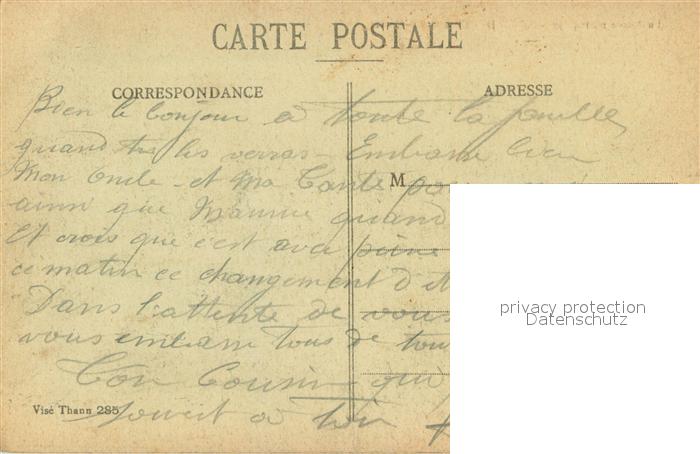 CARTE POSTALE
CORRESPONDANCE
ADRESSE
Bien le bonjour a toute la famille
quand tu les verras - Embrasse bien
Mon Oncle et Ma Tante
M
ainsi que Maurice quand
Et crois que c'est avec peine
ce matin ce changement d'
Dans l'attente de vous
vous embrasse tous de tou
Ton Cousin qui
Visé Thann 285
a toi
privacy protection
Datenschutz